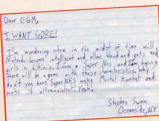 Dear EGM,
I WANT GORE!
I'm wondering when in the midst of time, will
Nintendo become intelligent and allow blood and guts and
girls in bikinis. I own a Super Nes, and I'm hoping
there will be a game with these characteristics. Why
don't you have Super NES make Mortal Kombat and
make it ultraviolent. Yeah!
Stephen Swan
Oceanside, NY